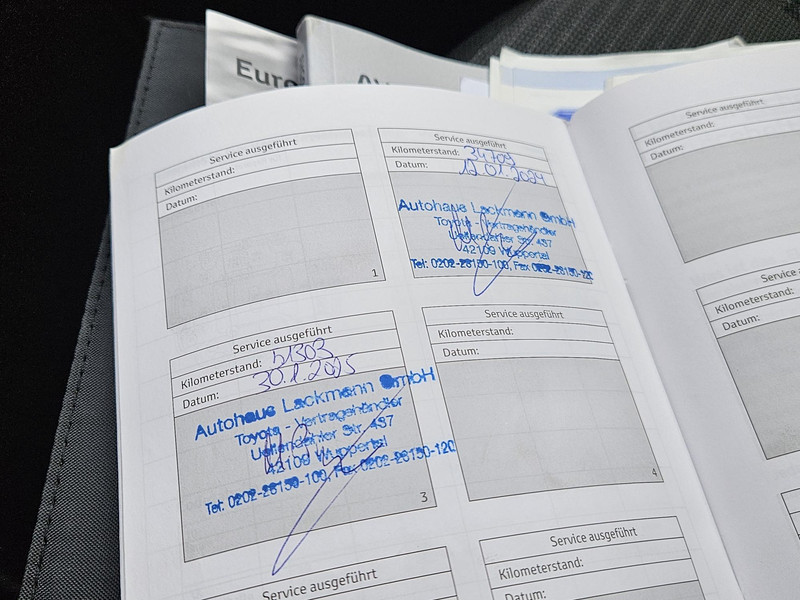 Euro
Service ausgeführt
Kilometerstand:
Datum:
1
Service ausgeführt
Kilometerstand: 34709
Datum: 12.01.2024
Autohaus Lackmann GmbH
Toyota - Vertragshändler
Uellendahler Str. 437
42109 Wuppertal
Tel: 0202-28150-100, Fax 0202-28150-120
Service ausgeführt
Kilometerstand: 51303
Datum: 30.1.2025
Autohaus Lackmann GmbH
Toyota - Vertragshändler
Uellendahler Str. 437
42109 Wuppertal
Tel: 0202-28150-100, Fax 0202-28150-120
3
Service ausgeführt
Kilometerstand:
Datum:
4
Service ausgeführt
Service ausgeführt
Kilometerstand:
Datum:
Service ausgeführt
Kilometerstand:
Datum:
Service a
Kilometerstand:
Datum: